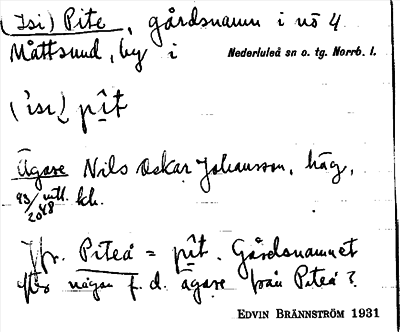 (Isi) Pite, gårdsnamn i nö 4
Måttsund, by i Nederluleå sn o. tg. Norrb. l.
('isi) pît
Ägare Nils Oskar Johansson, häg,
93/2048 mtl. kh.
Jfr. Piteå = pît. Gårdsnamnet
efter någon f. d. ägare från Piteå?
EDVIN BRÄNNSTRÖM 1931